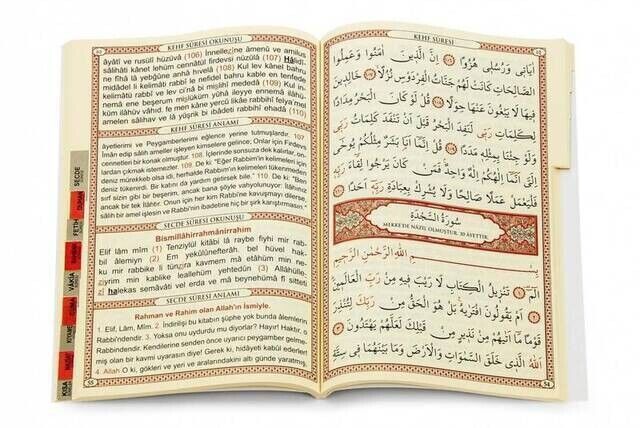 KEHF SÛRESİ OKUNUŞU
âyâtî ve rusulî hüzüvâ (106) İnnellezine âmenû ve amilus
sâlihâti kânet lehüm cennâtül firdevsi nüzülâ (107) Hâlidî-
ne fîhâ lâ yebğûne anhâ hivelâ (108) Kul lev kânel bahru
midâdel li kelimâti rabbî le nefidel bahru kable en tenfede
kelimâtü rabbî ve lev ci'nâ bi mislihî mededâ (109) Kul in-
nemâ ene beşerum mislüküm yûhâ ileyye ennemâ ilâhü-
küm ilâhüv vâhid, fe men kâne yercû likâe rabbihî felya'mel
amelen sâlihav ve lâ yüşrik bi ıbâdeti rabbihî ehadâ (110)
KEHF SÛRESİ ANLAMI
âyetlerimi ve Peygamberlerimi eğlence yerine tutmuşlardır. 107
İman edip salih ameller işleyen kimselere gelince; Onlar için Firdevs
cennetleri bir konak olmuştur. 108. İçlerinde sonsuza dek kalırlar, on-
lardan çıkmak istemezler. 109. De ki: "Eğer Rabbim'in kelimeleri için
deniz mürekkeb olsa idi, herhalde Rabbim'in kelimeleri tükenmeden
deniz tükenirdi. Bir katını da yardım getirsek bile." 110. De ki: "Ben
sırf sizin gibi bir beşerim, ancak bana şöyle vahyolunuyor: İlâhınız
ancak bir tek İlâhtır. Onun için her kim Rabbi'ne kavuşmayı dilerse,
sâlih bir amel işlesin ve Rabbi'nin ibadetine hiç bir şirk karıştırmasın."
SECDE SÛRESİ OKUNUŞU
Bismillâhirrahmânirrahim
Elif lâm mîm (1) Tenziylül kitâbi lâ raybe fîyhi mir rab-
bil âlemiyn (2) Em yekûlûnefterâh, bel hüvel hak-
ku mir rabbike li tünzira kavmem mâ etâhüm min ne-
ziyrim min kablike leallehüm yehtedûn (3) Allâhülle-
zi halekas semâvâti vel erda ve mâ beynehümâ fî sitteti
SECDE SÛRESİ ANLAMI
Rahman ve Rahim olan Allah'ın İsmiyle.
1. Elif, Lâm, Mîm. 2. İndirilişi bu kitabın şüphe yok bunda âlemlerin
Rabbi'ndendir. 3. Yoksa onu uydurdu mu diyorlar? Hayır! Haktır, o
Rabbi'ndendir. Kendilerine senden önce uyarıcı peygamber gelme-
miş olan bir kavmi uyarasın diye! Gerek ki, hidâyeti kabül ederler!
4. Allah O ki, gökleri ve yeri ve aralarındakini altı günde yaratmış,
KEHF SÛRESİ
اٰيَاتٖي وَرُسُلٖي هُزُوًا اِنَّ الَّذٖينَ اٰمَنُوا وَعَمِلُوا
الصَّالِحَاتِ كَانَتْ لَهُمْ جَنَّاتُ الْفِرْدَوْسِ نُزُلًا خَالِدٖينَ
فٖيهَا لَا يَبْغُونَ عَنْهَا حِوَلًا قُلْ لَوْ كَانَ الْبَحْرُ مِدَادًا
لِكَلِمَاتِ رَبّٖي لَنَفِدَ الْبَحْرُ قَبْلَ اَنْ تَنْفَدَ كَلِمَاتُ رَبّٖي
وَلَوْ جِئْنَا بِمِثْلِهٖ مَدَدًا قُلْ اِنَّمَا اَنَا بَشَرٌ مِثْلُكُمْ يُوحٰٓى
اِلَيَّ اَنَّمَا اِلٰهُكُمْ اِلٰهٌ وَاحِدٌ فَمَنْ كَانَ يَرْجُوا لِقَاءَ رَبِّهٖ
فَلْيَعْمَلْ عَمَلًا صَالِحًا وَلَا يُشْرِكْ بِعِبَادَةِ رَبِّهٖ اَحَدًا
سُورَةُ السَّجْدَةِ
MEKKE'DE NÂZİL OLMUŞTUR. 30 ÂYETTİR.
بِسْمِ اللّٰهِ الرَّحْمٰنِ الرَّحٖيمِ
الٓمٓ تَنْزٖيلُ الْكِتَابِ لَا رَيْبَ فٖيهِ مِنْ رَبِّ الْعَالَمٖينَ
اَمْ يَقُولُونَ افْتَرٰيهُ بَلْ هُوَ الْحَقُّ مِنْ رَبِّكَ لِتُنْذِرَ
قَوْمًا مَا اَتٰيهُمْ مِنْ نَذٖيرٍ مِنْ قَبْلِكَ لَعَلَّهُمْ يَهْتَدُونَ
اَللّٰهُ الَّذٖي خَلَقَ السَّمٰوَاتِ وَالْاَرْضَ وَمَا بَيْنَهُمَا فٖي سِتَّةِ
SECDE
DUHAN
FETİH
VÂKIA
KIYAME
KISA